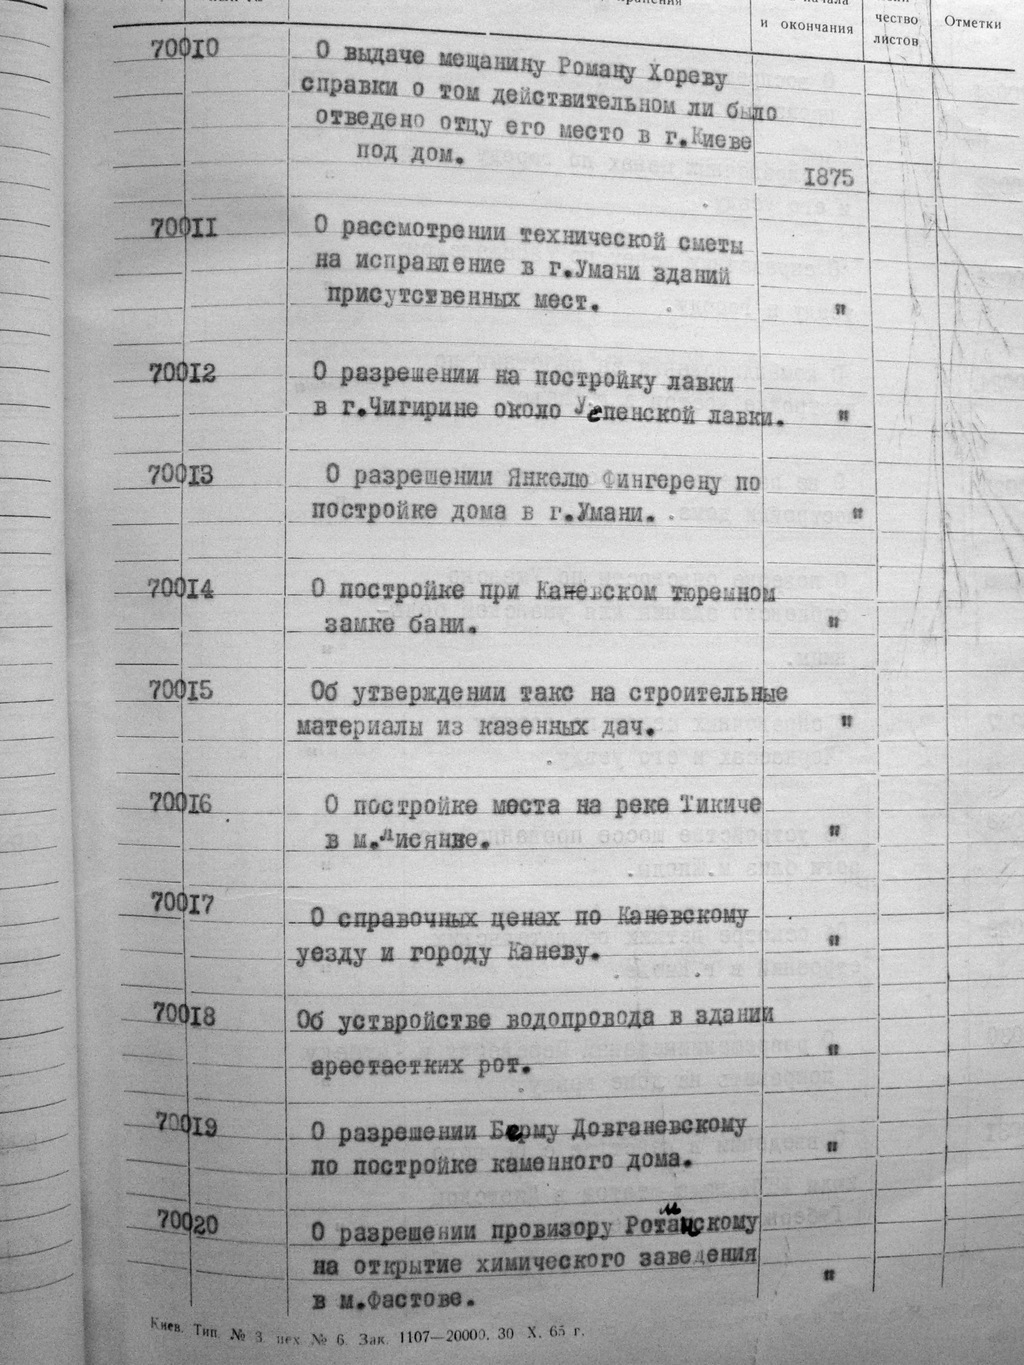 хранения
начала
и окончания
чество
листов
Отметки
70010 О выдаче мещанину Роману Хореву
справки о том действительном ли было
отведено отцу его место в г.Киеве
под дом.
1875
70011 О рассмотрении технической сметы
на исправление в г.Умани зданий
присутственных мест. "
70012 О разрешении на постройку лавки
в г.Чигирине около Успенской лавки. "
70013 О разрешении Янкелю Фингерену по
постройке дома в г.Умани. "
70014 О постройке при Каневском тюремном
замке бани. "
70015 Об утверждении такс на строительные
материалы из казенных дач. "
70016 О постройке моста на реке Тикиче
в м.Лисянке. "
70017 О справочных ценах по Каневскому
уезду и городу Каневу. "
70018 Об уствройстве водопровода в здании
арестастких рот. "
70019 О разрешении Берму Довганевскому
по постройке каменного дома. "
70020 О разрешении провизору
на открытие химического заведения
в м.Фастове. "
Киев. Тип. № 3. цех № 6. Зак. 1107—20000. 30 X. 65 г.